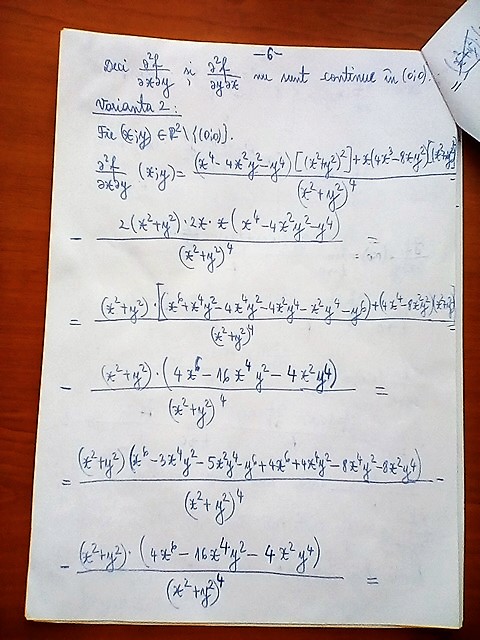 -6-
Deci ∂²f/∂x∂y, și ∂²f/∂y∂x nu sunt continue în (0;0).
Varianta 2:
Fie (x;y) ∈ ℝ² \ {(0;0)}.
∂²f/∂x∂y (x;y) = (x⁴ - 4x²y² - y⁴)[(x²+y²)²] + x(4x³ - 8xy²)[(x²+y²)²] / (x²+y²)⁴
- 2(x²+y²)·2x·x(x⁴ - 4x²y² - y⁴) / (x²+y²)⁴ =
= (x²+y²)·[(x⁶ + x⁴y² - 4x⁴y² - 4x²y⁴ - x²y⁴ - y⁶) + (4x⁴ - 8x²y²)(x²+y²)] / (x²+y²)⁴
- (x²+y²)·(4x⁶ - 16x⁴y² - 4x²y⁴) / (x²+y²)⁴ =
= (x²+y²)(x⁶ - 3x⁴y² - 5x²y⁴ - y⁶ + 4x⁶ + 4x⁴y² - 8x⁴y² - 8x²y⁴) / (x²+y²)⁴ -
- (x²+y²)·(4x⁶ - 16x⁴y² - 4x²y⁴) / (x²+y²)⁴ =